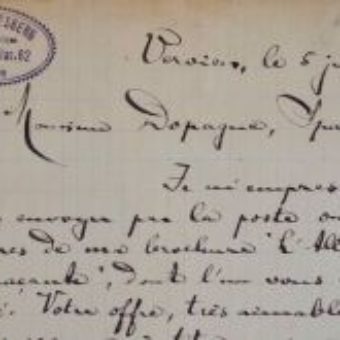 ESBERG
62
Verviers, le 5 ju
Monsieur Dopagne, Spa
Je m'empres
envoyer par la poste
res de ma brochure "L'All
açante", dont l'un vous
Votre offre, très aimable